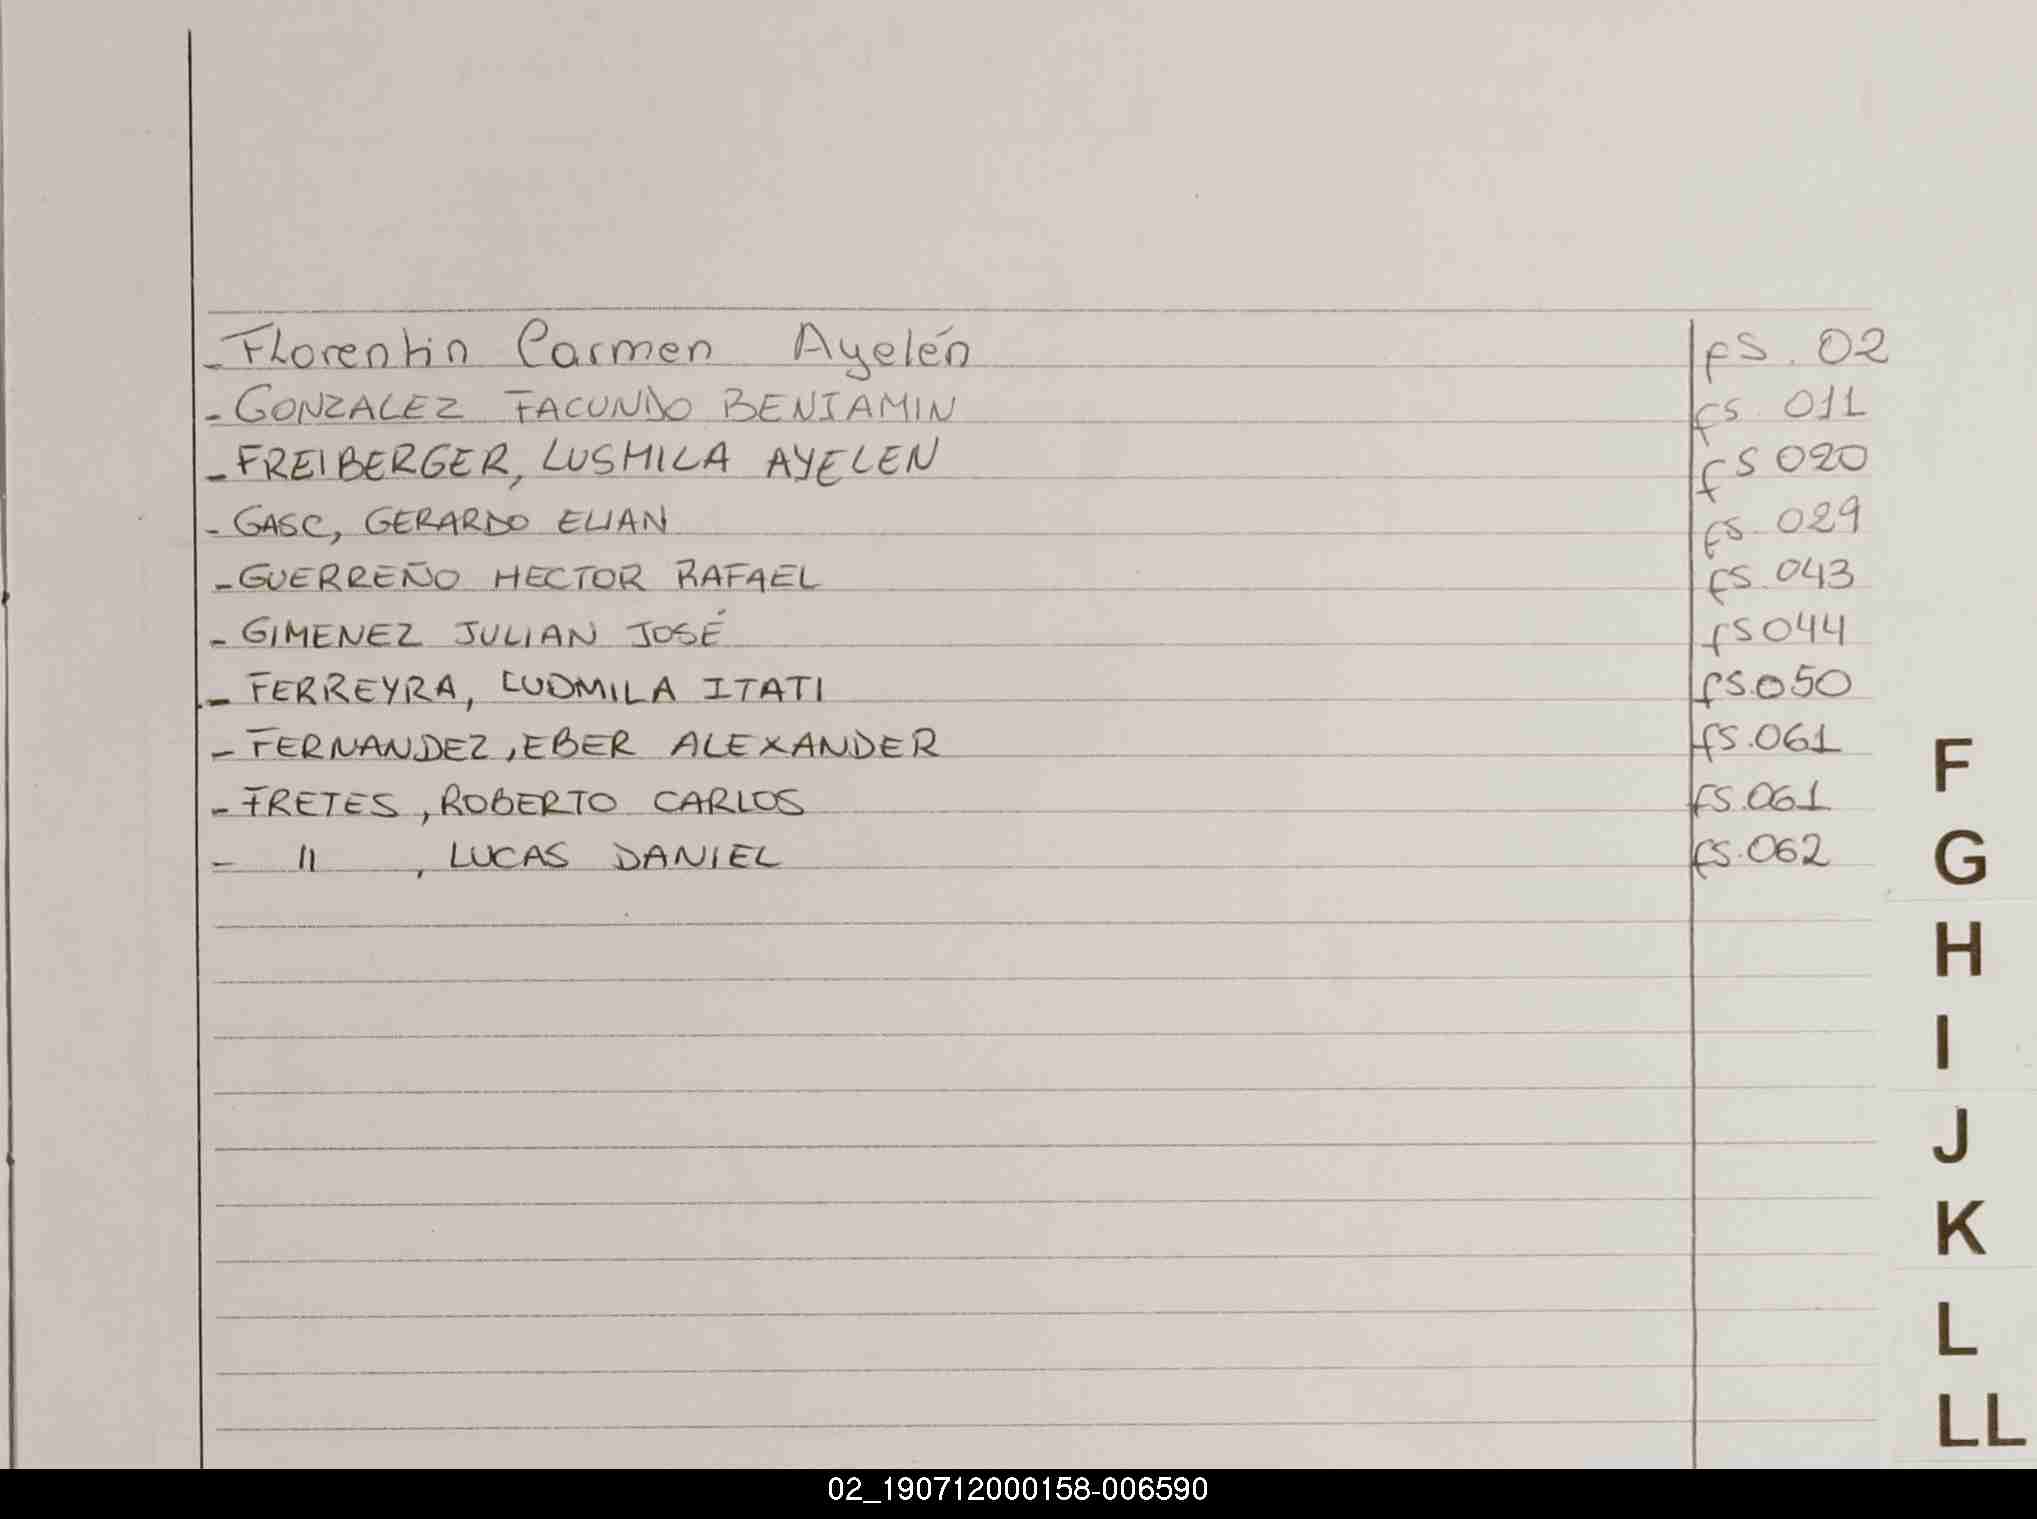 - Florentin Carmen Ayelén fs. 02
- GONZALEZ FACUNDO BENJAMIN fs. 011
- FREIBERGER, LUSMILA AYELEN fs 020
- GASC, GERARDO ELIAN fs. 029
- GUERREÑO HECTOR RAFAEL fs. 043
- GIMENEZ JULIAN JOSÉ fs 044
- FERREYRA, LUDMILA ITATI fs.050
- FERNANDEZ, EBER ALEXANDER fs.061
- FRETES, ROBERTO CARLOS fs.061
- 11 , LUCAS DANIEL fs.062
F
G
H
I
J
K
L
LL
02_190712000158-006590